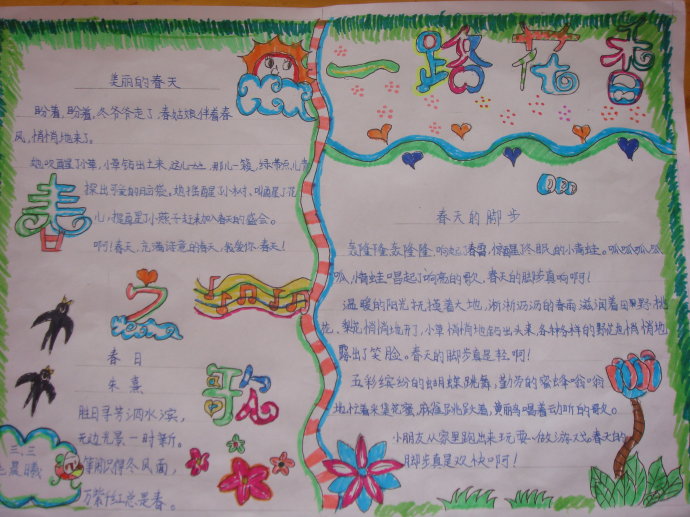 美丽的春天
盼着,盼着,冬爷爷走了,春姑娘伴着春
风,悄悄地来了。
她吹醒了小草,小草钻出土来,这儿一丛,那儿一颗,绿
探出可爱的脑袋。她摇醒了小树、叫醒了花
儿,推醒了小燕子赶来加入春天的盛会。
啊!春天,充满诗意的春天,我爱你,春天!
春
之
歌
春日
朱熹
胜日寻芳泗水滨,
无边光景一时新。
等闲识得东风面,
万紫千红总是春。
三、三
晨曦
一路花香
春天的脚步
轰隆隆,轰隆隆,响起了春雷,惊醒了冬眠的小青蛙。呱呱呱,呱
呱,小青蛙唱起了响亮的歌。春天的脚步真响啊!
温暖的阳光抚摸着大地,淅淅沥沥的春雨滋润着田野,桃
花、梨花悄悄地开了,小草悄悄地钻出头来,各种各样的野花也悄悄地
露出了笑脸。春天的脚步真是轻啊!
五彩缤纷的蝴蝶跳舞,勤劳的蜜蜂嗡嗡
地忙着采集花蜜,麻雀蹦跳跃着,黄鹂鸟唱着动听的歌。
小朋友从家里跑出来玩耍、做游戏。春天的
脚步真是欢快啊!